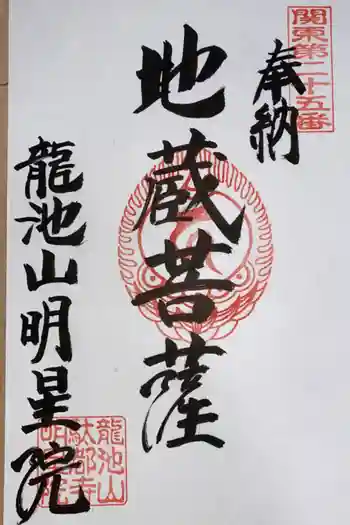 関東第二十五番
奉納
地蔵菩薩
龍池山明星院
龍池山
駄都寺
明星院